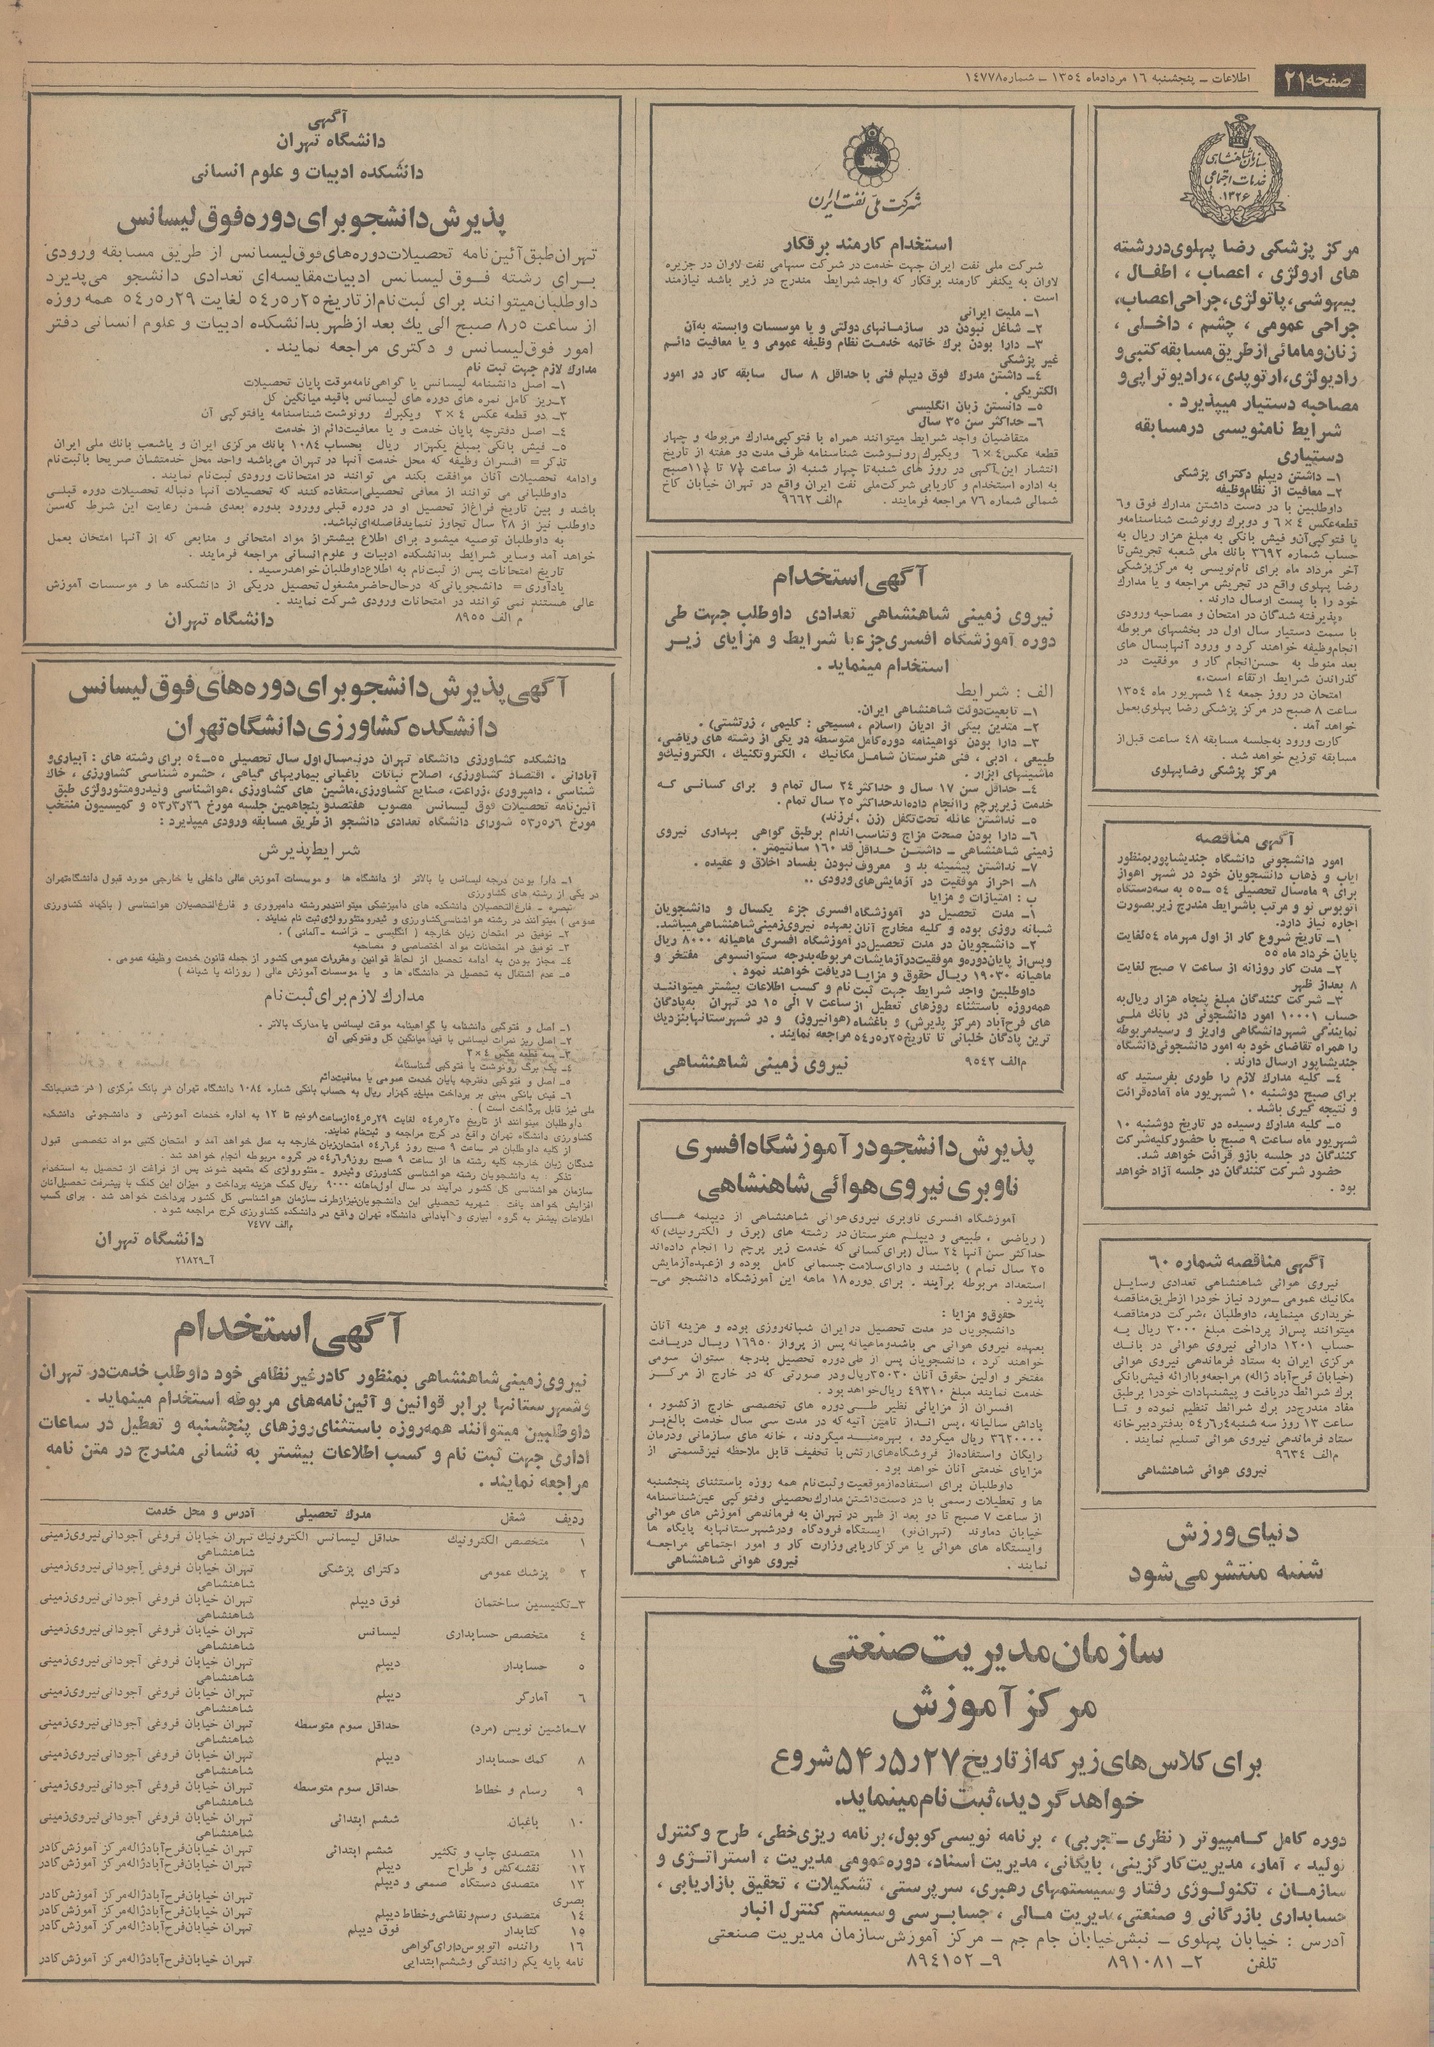 صفحه ۲۱
اطلاعات ـ پنجشنبه ۱۶ مرداد ماه ۱۳۵۴ ـ شماره ۱۴۷۷۸
سازمان شاهنشاهی
خدمات اجتماعی
۱۳۲۶
مرکز پزشکی رضا پهلوی در رشته
های ارولژی ، اعصاب ، اطفال ،
بیهوشی، پاتولژی، جراحی اعصاب،
جراحی عمومی ، چشم ، داخلی ،
زنان و مامائی از طریق مسابقه کتبی و
رادیولژی، ارتوپدی،، رادیوتراپی و
مصاحبه دستیار میپذیرد .
شرایط نامنویسی در مسابقه
دستیاری
۱ـ داشتن دیپلم دکترای پزشکی
۲ـ معافیت از نظام وظیفه
داوطلبین با در دست داشتن مدارک فوق و ۶
قطعه عکس ۴ × ۶ و دوبرک رونوشت شناسنامه و
یا فتوکپی آن و فیش بانکی به مبلغ هزار ریال به
حساب شماره ۳۶۹۲ بانک ملی شعبه تجریش تا
آخر مرداد ماه برای نام‌نویسی به مرکز پزشکی
رضا پهلوی واقع در تجریش مراجعه و یا مدارک
خود را با پست ارسال دارند .
«پذیرفته شدگان در امتحان و مصاحبه ورودی
با سمت دستیار سال اول در بخشهای مربوطه
انجام وظیفه خواهند کرد و ورود آنها بسال های
بعد منوط به حسن انجام کار و موفقیت در
گذراندن شرایط ارتقاء است.»
امتحان در روز جمعه ۱۴ شهریور ماه ۱۳۵۴
ساعت ۸ صبح در مرکز پزشکی رضا پهلوی بعمل
خواهد آمد .
کارت ورود به جلسه مسابقه ۴۸ ساعت قبل از
مسابقه توزیع خواهد شد .
مرکز پزشکی رضا پهلوی
آگهی مناقصه
امور دانشجوئی دانشگاه جندیشاپور بمنظور
ایاب و ذهاب دانشجویان خود در شهر اهواز
برای ۹ ماه سال تحصیلی ۵۴ ـ ۵۵ به سه دستگاه
اتوبوس نو و مرتب باشرایط مندرج زیر بصورت
اجاره نیاز دارد.
۱ـ تاریخ شروع کار از اول مهر ماه ۵۴ لغایت
پایان خرداد ماه ۵۵
۲ـ مدت کار روزانه از ساعت ۷ صبح لغایت
۸ بعد از ظهر
۳ـ شرکت کنندگان مبلغ پنجاه هزار ریال به
حساب ۱۰۰۰۱ امور دانشجوئی در بانک ملی
نمایندگی شهر دانشگاهی واریز و رسید مربوطه
را همراه تقاضای خود به امور دانشجوئی دانشگاه
جندیشاپور ارسال دارند .
۴ـ کلیه مدارک لازم را طوری بفرستید که
برای صبح دوشنبه ۱۰ شهریور ماه آماده قرائت
و نتیجه گیری باشد .
۵ـ کلیه مدارک رسیده در تاریخ دوشنبه ۱۰
شهریور ماه ساعت ۹ صبح با حضور کلیه شرکت
کنندگان در جلسه بازو قرائت خواهد شد.
حضور شرکت کنندگان در جلسه آزاد خواهد
بود .
آگهی مناقصه شماره ۶۰
نیروی هوائی شاهنشاهی تعدادی وسایل
مکانیک عمومی ـ مورد نیاز خود را از طریق مناقصه
خریداری مینماید، داوطلبان ، شرکت در مناقصه
میتوانند پس از پرداخت مبلغ ۳۰۰۰ ریال به
حساب ۱۲۰۱ دارائی نیروی هوائی در بانک
مرکزی ایران به ستاد فرماندهی نیروی هوائی
(خیابان فرح‌آباد ژاله) مراجعه و باارائه فیش بانکی
برک شرائط دریافت و پیشنهادات خود را برطبق
مفاد مندرج در برک شرائط تنظیم نموده و تا
ساعت ۱۳ روز سه شنبه ۵۴ر۶ر۴ بدفتر دبیرخانه
ستاد فرماندهی نیروی هوائی تسلیم نمایند .
م الف ۹۶۳۴
نیروی هوائی شاهنشاهی
دنیای ورزش
شنبه منتشر می‌شود
شرکت ملی نفت ایران
استخدام کارمند برقکار
شرکت ملی نفت ایران جهت خدمت در شرکت سهامی نفت لاوان در جزیره
لاوان به یکنفر کارمند برقکار که واجد شرایط مندرج در زیر باشد نیازمند
است .
۱ـ ملیت ایرانی
۲ـ شاغل نبودن در سازمانهای دولتی و یا موسسات وابسته به آن
۳ـ دارا بودن برک خاتمه خدمت نظام وظیفه عمومی و یا معافیت دائم
غیر پزشکی
۴ـ داشتن مدرک فوق دیپلم فنی با حداقل ۸ سال سابقه کار در امور
الکتریکی .
۵ـ دانستن زبان انگلیسی
۶ـ حداکثر سن ۳۵ سال
متقاضیان واجد شرایط میتوانند همراه با فتوکپی مدارک مربوطه و چهار
قطعه عکس ۴ × ۶ ویکبرک رونوشت شناسنامه ظرف مدت دو هفته از تاریخ
انتشار این آگهی در روز های شنبه تا چهار شنبه از ساعت ۷½ تا ۱۱½ صبح
به اداره استخدام و کاریابی شرکت ملی نفت ایران واقع در تهران خیابان کاخ
شمالی شماره ۷۶ مراجعه فرمایند . م الف ۹۶۶۲
آگهی استخدام
نیروی زمینی شاهنشاهی تعدادی داوطلب جهت طی
دوره آموزشگاه افسری جزء با شرایط و مزایای زیر
استخدام مینماید .
الف : شرایط
۱ـ تابعیت دولت شاهنشاهی ایران.
۲ـ متدین بیکی از ادیان (اسلام ، مسیحی : کلیمی ، زرتشتی) .
۳ـ دارا بودن گواهینامه دوره کامل متوسطه در یکی از رشته های ریاضی،
طبیعی ، ادبی ، فنی هنرستان شامل مکانیک ، الکتروتکنیک ، الکترونیک و
ماشینهای ابزار .
۴ـ حداقل سن ۱۷ سال و حداکثر ۲۴ سال تمام و برای کسانی که
خدمت زیر پرچم را انجام داده اند حداکثر ۲۵ سال تمام .
۵ـ نداشتن عائله تحت تکفل (زن ، فرزند)
۶ـ دارا بودن صحت مزاج و تناسب اندام برطبق گواهی بهداری نیروی
زمینی شاهنشاهی ـ داشتن حداقل قد ۱۶۰ سانتیمتر .
۷ـ نداشتن پیشینه بد و معروف نبودن بفساد اخلاق و عقیده .
۸ـ احراز موفقیت در آزمایش‌های ورودی ..
ب : امتیازات و مزایا
۱ـ مدت تحصیل در آموزشگاه افسری جزء یکسال و دانشجویان
شبانه روزی بوده و کلیه مخارج آنان بعهده نیروی زمینی شاهنشاهی میباشد.
۲ـ دانشجویان در مدت تحصیل در آموزشگاه افسری ماهیانه ۸۰۰۰ ریال
وپس از پایان دوره و موفقیت در آزمایشات مربوطه بدرجه ستوانسومی مفتخر و
ماهیانه ۱۹۰۳۰ ریال حقوق و مزایا دریافت خواهند نمود .
داوطلبین واجد شرایط جهت ثبت نام و کسب اطلاعات بیشتر میتوانند
همه روزه باستثناء روزهای تعطیل از ساعت ۷ الی ۱۵ در تهران به پادگان
های فرح‌آباد (مرکز پذیرش) و باغشاه (هوانیروز) و در شهرستانها بنزدیک
ترین پادگان خلبانی تا تاریخ ۵۴ر۵ر۲۵ مراجعه نمایند .
م الف ۹۵۴۳ نیروی زمینی شاهنشاهی
پذیرش دانشجو در آموزشگاه افسری
ناوبری نیروی هوائی شاهنشاهی
آموزشگاه افسری ناوبری نیروی هوائی شاهنشاهی از دیپلمه های
( ریاضی ، طبیعی و دیپلم هنرستان در رشته های (برق و الکترونیک) که
حداکثر سن آنها ۲۴ سال (برای کسانی که خدمت زیر پرچم را انجام داده اند
۲۵ سال تمام ) باشند و دارای سلامت جسمانی کامل بوده و از عهده آزمایش
استعداد مربوطه برآیند . برای دوره ۱۸ ماهه این آموزشگاه دانشجو می‌ـ
پذیرد .
حقوق و مزایا :
دانشجویان در مدت تحصیل در ایران شبانه‌روزی بوده و هزینه آنان
بعهده نیروی هوائی می باشد و ماهیانه پس از پرواز ۱۶۹۵۰ ریال دریافت
خواهند کرد ، دانشجویان پس از طی دوره تحصیل بدرجه ستوان سومی
مفتخر و اولین حقوق آنان ۳۵۰۳۰ ریال و در صورتی که در خارج از مرکز
خدمت نمایند مبلغ ۴۹۳۱۰ ریال خواهد بود .
افسران از مزایائی نظیر طی دوره های تخصصی خارج از کشور ،
پاداش سالیانه ، پس انداز تامین آتیه که در مدت سی سال خدمت بالغ بر
۳۶۲۰۰۰۰ ریال میگردد ، بهره‌مند میگردند ، خانه های سازمانی و درمان
رایگان و استفاده از فروشگاه‌های ارتش با تخفیف قابل ملاحظه نیز قسمتی از
مزایای خدمتی آنان خواهد بود .
داوطلبان برای استفاده از موقعیت و ثبت نام همه روزه باستثنای پنجشنبه
ها و تعطیلات رسمی با در دست داشتن مدارک تحصیلی وفتوکپی عین شناسنامه
از ساعت ۷ صبح تا دو بعد از ظهر در تهران به فرماندهی آموزش های هوائی
خیابان دماوند (تهران نو) ایستگاه فرودگاه و در شهرستانها به پایگاه ها
وایستگاه های هوائی یا مرکز کاریابی وزارت کار و امور اجتماعی مراجعه
نمایند . نیروی هوائی شاهنشاهی
سازمان مدیریت صنعتی
مرکز آموزش
برای کلاس های زیر که از تاریخ ۵۴ر۵ر۲۷ شروع
خواهد گردید، ثبت نام مینماید.
دوره کامل کامپیوتر ( نظری ـ تجربی) ، برنامه نویسی کوبول، برنامه ریزی خطی، طرح و کنترل
تولید ، آمار، مدیریت کارگزینی، بایگانی، مدیریت اسناد، دوره عمومی مدیریت ، استراتژی و
سازمان ، تکنولوژی رفتار و سیستمهای رهبری، سرپرستی، تشکیلات ، تحقیق بازاریابی ،
حسابداری بازرگانی و صنعتی، مدیریت مالی ، حسابرسی و سیستم کنترل انبار
آدرس : خیابان پهلوی ـ نبش خیابان جام جم ـ مرکز آموزش سازمان مدیریت صنعتی
تلفن ۲ـ ۸۹۱۰۸۱ ۹ـ ۸۹۴۱۵۲
آگهی
دانشگاه تهران
دانشکده ادبیات و علوم انسانی
پذیرش دانشجو برای دوره فوق لیسانس
تهران طبق آئین‌نامه تحصیلات دوره‌های فوق لیسانس از طریق مسابقه ورودی
برای رشته فوق لیسانس ادبیات مقایسه‌ای تعدادی دانشجو می‌پذیرد
داوطلبان میتوانند برای ثبت نام از تاریخ ۵۴ر۵ر۲۵ لغایت ۵۴ر۵ر۲۹ همه روزه
از ساعت ۸ر۵ صبح الی یک بعد از ظهر بدانشکده ادبیات و علوم انسانی دفتر
امور فوق لیسانس و دکتری مراجعه نمایند .
مدارک لازم جهت ثبت نام
۱ـ اصل دانشنامه لیسانس یا گواهی نامه موقت پایان تحصیلات
۲ـ ریز کامل نمره های دوره های لیسانس باقید میانگین کل
۳ـ دو قطعه عکس ۴ × ۳ ویکبرک رونوشت شناسنامه یافتوکپی آن
۴ـ اصل دفترچه پایان خدمت و یا معافیت دائم از خدمت
۵ـ فیش بانکی بمبلغ یکهزار ریال بحساب ۱۰۸۴ بانک مرکزی ایران و یاشعب بانک ملی ایران
تذکر = افسران وظیفه که محل خدمت آنها در تهران می‌باشد واحد محل خدمتشان صریحا با ثبت نام
وادامه تحصیلات آنان موافقت بکند می توانند در امتحانات ورودی ثبت نام نمایند .
داوطلبانی می توانند از معافی تحصیلی استفاده کنند که تحصیلات آنها دنباله تحصیلات دوره قبلی
باشد و بین تاریخ فراغ از تحصیل او در دوره قبلی وورود بدوره بعدی ضمن رعایت این شرط که سن
داوطلب نیز از ۲۸ سال تجاوز ننماید فاصله ای نباشد.
به داوطلبان توصیه میشود برای اطلاع بیشتر از مواد امتحانی و منابعی که از آنها امتحان بعمل
خواهد آمد وسایر شرایط بدانشکده ادبیات و علوم انسانی مراجعه فرمایند .
تاریخ امتحانات پس از ثبت‌نام به اطلاع داوطلبان خواهد رسید .
یادآوری = دانشجویانی که در حال حاضر مشغول تحصیل در یکی از دانشکده ها و موسسات آموزش
عالی هستند نمی توانند در امتحانات ورودی شرکت نمایند .
م الف ۸۹۵۵ دانشگاه تهران
آگهی پذیرش دانشجو برای دوره‌های فوق لیسانس
دانشکده کشاورزی دانشگاه تهران
دانشکده کشاورزی دانشگاه تهران در نیمسال اول سال تحصیلی ۵۵ـ۵۴ برای رشته های : آبیاری و
آبادانی ، اقتصاد کشاورزی، اصلاح نباتات باغبانی بیماریهای گیاهی ، حشره شناسی کشاورزی ، خاک
شناسی ، دامپروری ، زراعت، صنایع کشاورزی، ماشین های کشاورزی ، هواشناسی و ئیدرومتئورولژی طبق
آئین‌نامه تحصیلات فوق لیسانس مصوب هفتصدو پنجاهمین جلسه مورخ ۵۳ر۳ر۲۶ و کمیسیون منتخب
مورخ ۵۳ر۵ر۶ شورای دانشگاه تعدادی دانشجو از طریق مسابقه ورودی میپذیرد :
شرایط پذیرش
۱ـ دارا بودن درجه لیسانس یا بالاتر از دانشگاه ها و موسسات آموزش عالی داخلی یا خارجی مورد قبول دانشگاه تهران
در یکی از رشته های کشاورزی
تبصره ـ فارغ‌التحصیلان دانشکده های دامپزشکی میتوانند در رشته دامپروری و فارغ‌التحصیلان هواشناسی ( باکهاد کشاورزی
عمومی ) میتوانند در رشته هواشناسی کشاورزی و ئیدرومتئورولژی ثبت نام نمایند .
۲ـ توفیق در امتحان زبان خارجه ( انگلیسی ـ فرانسه ـ آلمانی ) .
۳ـ توفیق در امتحانات مواد اختصاصی و مصاحبه
۴ـ مجاز بودن به ادامه تحصیل از لحاظ قوانین ومقررات عمومی کشور از جمله قانون خدمت وظیفه عمومی .
۵ـ عدم اشتغال به تحصیل در دانشگاه ها و یا موسسات آموزش عالی ( روزانه یا شبانه )
مدارک لازم برای ثبت نام
۱ـ اصل و فتوکپی دانشنامه یا گواهینامه موقت لیسانس یا مدارک بالاتر .
۲ـ اصل ریز نمرات لیسانس با قید میانگین کل وفتوکپی آن
۳ـ سه قطعه عکس ۴ × ۳
۴ـ یک برک رونوشت یا فتوکپی شناسنامه
۵ـ اصل و فتوکپی دفترچه پایان خدمت عمومی یا معافیت دائم
۶ـ فیش بانکی مبنی بر پرداخت مبلغ یکهزار ریال به حساب بانکی شماره ۱۰۸۴ دانشگاه تهران در بانک مرکزی ( در شعب بانک
ملی نیز قابل پرداخت است ) .
داوطلبان میتوانند از تاریخ ۵۴ر۵ر۲۵ لغایت ۵۴ر۵ر۲۹ از ساعت ۸ونیم تا ۱۲ به اداره خدمات آموزشی و دانشجوئی دانشکده
کشاورزی دانشگاه تهران واقع در کرج مراجعه و ثبت نام نمایند.
از کلیه داوطلبان در ساعت ۹ صبح روز ۵۴ر۶ر۴ امتحان زبان خارجه به عمل خواهد آمد و امتحان کتبی مواد تخصصی قبول
شدگان زبان خارجه کلیه رشته ها از ساعت ۹ صبح روز ۵۴ر۶ر۹ در گروه مربوطه انجام خواهد شد .
تذکر : به دانشجویان رشته هواشناسی کشاورزی وئیدرو ـ متئورولژی که متعهد شوند پس از فراغت از تحصیل به استخدام
سازمان هواشناسی کل کشور درآیند در سال اول ماهانه ۹۰۰۰ ریال کمک هزینه پرداخت و میزان این کمک با پیشرفت تحصیل آنان
افزایش خواهد یافت شهریه تحصیلی این دانشجویان نیز از طرف سازمان هواشناسی کل کشور پرداخت خواهد شد . برای کسب
اطلاعات بیشتر به گروه آبیاری و آبادانی دانشگاه تهران واقع در دانشکده کشاورزی کرج مراجعه شود .
م الف ۷۴۷۷
دانشگاه تهران
آـ ۲۱۸۲۹
آگهی استخدام
نیروی زمینی شاهنشاهی بمنظور کادر غیر نظامی خود داوطلب خدمت در تهران
وشهرستانها برابر قوانین و آئین‌نامه‌های مربوطه استخدام مینماید .
داوطلبین میتوانند همه روزه باستثنای روزهای پنجشنبه و تعطیل در ساعات
اداری جهت ثبت نام و کسب اطلاعات بیشتر به نشانی مندرج در متن نامه
مراجعه نمایند .
ردیف شغل مدرک تحصیلی آدرس و محل خدمت
۱ متخصص الکترونیک حداقل لیسانس الکترونیک تهران خیابان فروغی آجودانی نیروی زمینی
شاهنشاهی
۲ پزشک عمومی دکترای پزشکی تهران خیابان فروغی آجودانی نیروی زمینی
شاهنشاهی
۳ـ تکنیسین ساختمان فوق دیپلم تهران خیابان فروغی آجودانی نیروی زمینی
شاهنشاهی
۴ متخصص حسابداری لیسانس تهران خیابان فروغی آجودانی نیروی زمینی
شاهنشاهی
۵ حسابدار دیپلم تهران خیابان فروغی آجودانی نیروی زمینی
شاهنشاهی
۶ آمارگر دیپلم تهران خیابان فروغی آجودانی نیروی زمینی
شاهنشاهی
۷ـ ماشین نویس (مرد) حداقل سوم متوسطه تهران خیابان فروغی آجودانی نیروی زمینی
شاهنشاهی
۸ کمک حسابدار دیپلم تهران خیابان فروغی آجودانی نیروی زمینی
شاهنشاهی
۹ رسام و خطاط حداقل سوم متوسطه تهران خیابان فروغی آجودانی نیروی زمینی
شاهنشاهی
۱۰ باغبان ششم ابتدائی تهران خیابان فروغی آجودانی نیروی زمینی
شاهنشاهی
۱۱ متصدی چاپ و تکثیر ششم ابتدائی تهران خیابان فرح‌آباد ژاله مرکز آموزش کادر
۱۲ نقشه‌کش و طراح دیپلم تهران خیابان فرح‌آباد ژاله مرکز آموزش کادر
۱۳ متصدی دستگاه سمعی و دیپلم
بصری تهران خیابان فرح‌آباد ژاله مرکز آموزش کادر
۱۴ متصدی رسم و نقاشی وخطاط دیپلم تهران خیابان فرح‌آباد ژاله مرکز آموزش کادر
۱۵ کتابدار فوق دیپلم تهران خیابان فرح‌آباد ژاله مرکز آموزش کادر
۱۶ راننده اتوبوس دارای گواهی
نامه پایه یکم رانندگی وششم ابتدایی تهران خیابان فرح‌آباد ژاله مرکز آموزش کادر